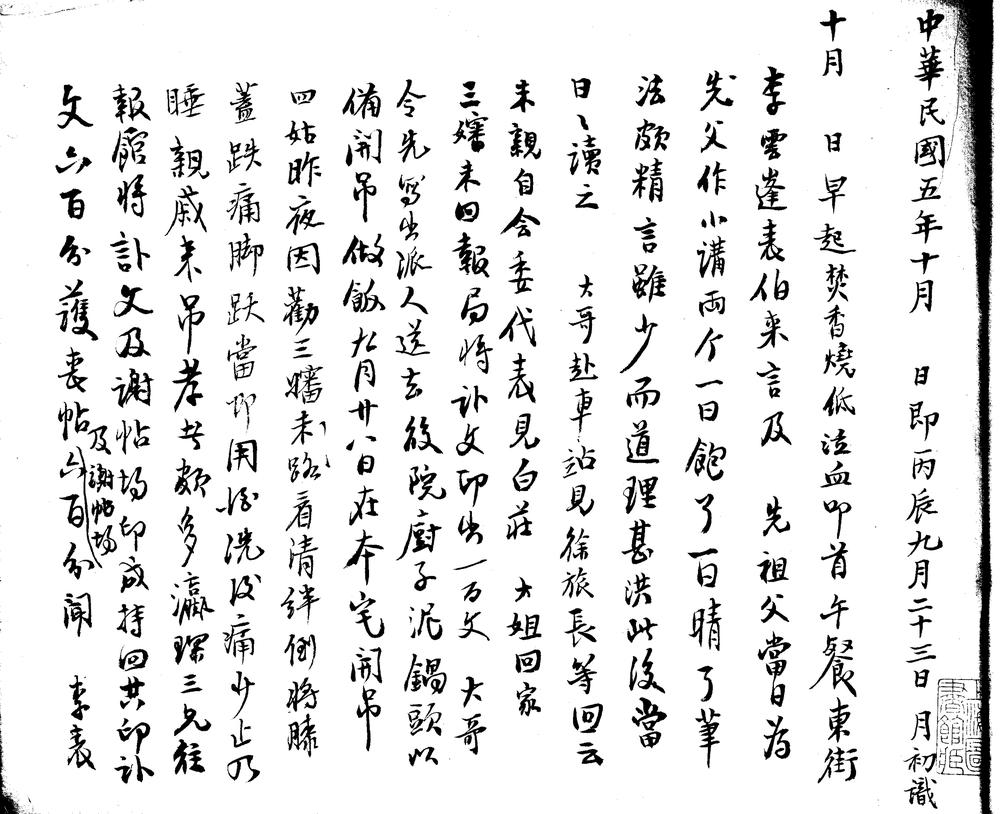 中華民國五年十月　日即丙辰九月二十三日　月初識
十月　日早起焚香燒低泣血叩首午餐東街
李雲逢表伯來言及　先祖父當日為
先父作小講兩个一日飽了一日晴了筆
法頗精言雖少而道理甚洪此後當
日〻讀之　大哥赴車站見徐旅長等回云
未親自会委代表見白莊　大姐回家
三嬸來回報局將訃文印出一百文　大哥
令先寫出派人送去後院廚子泥鍋頭以
備開吊做飯九月廿八日在本宅開吊
四姑昨夜因勸三嬸未路看清絆倒將膝
蓋跌痛脚跌當即用㕮洗後痛少止乃
睡親戚來吊孝者頗多瀛琛三兄往
報館將訃文及謝帖均印成持回共印訃
文六百分護喪帖及謝帖均六百分聞　李表